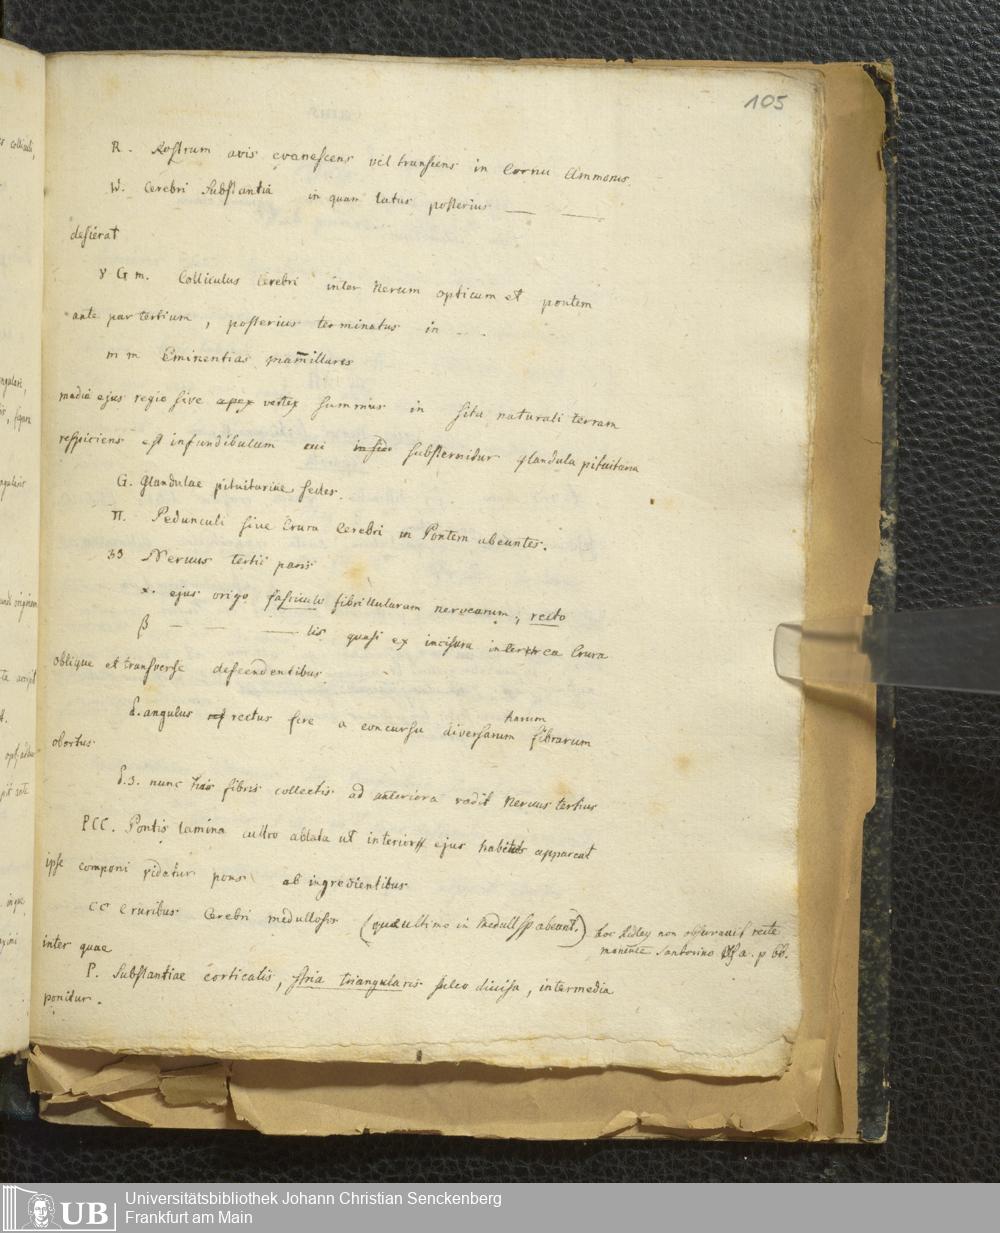 105
R. Rostrum avis evanescens vel transiens in Cornu Ammonis.
W. Cerebri Substantia in quam latus posterius — —
desierat
γ G m. Colliculus Cerebri inter Nervum opticum et pontem
ante par tertium, posterius terminatus in . . .
m m Eminentias mamillares
media ejus regio sive apex vertex summus in situ naturali terram
respiciens est infundibulum cui in side substernitur glandula pituitaria
G. Glandulae pituitariae sedes.
π. Pedunculi sive Crura Cerebri in Pontem abeuntes.
33 Nervus tertii paris
x. ejus origo fasciculo fibrillularum nervearum, recto
β — — lis quasi ex incisura Crura
oblique et transverse descendentibus
δ. angulus rectus fere a concursu diversarum harum fibrarum
obortus
δ.3. nunc his fibris collectis ad anteriora vadit Nervus tertius
PCC. Pontis lamina cultro ablata ut interior ejus habitus appareat
ipse componi videtur pons ab ingredientibus
CC Cruribus Cerebri medullosis (quae ultimo in Medull Sp abeunt.) hoc Ridley non observavit recte
monente Santorino a. p 66.
inter quae
P. Substantiae corticalis, stria triangularis sulco divisa, intermedia
ponitur.
UB
Universitätsbibliothek Johann Christian Senckenberg
Frankfurt am Main